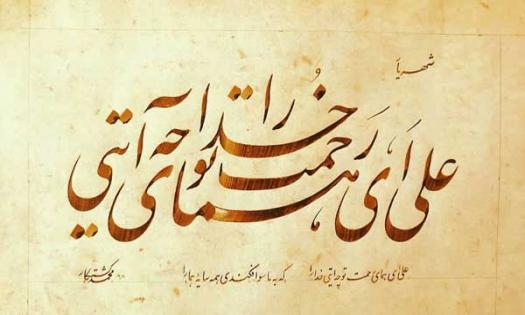 شهریار
علی ای همای رحمت تو چه آیتی خدا را
علی ای همای رحمت تو چه آیتی خدا را که به ماسوا فکندی همه سایه هما را